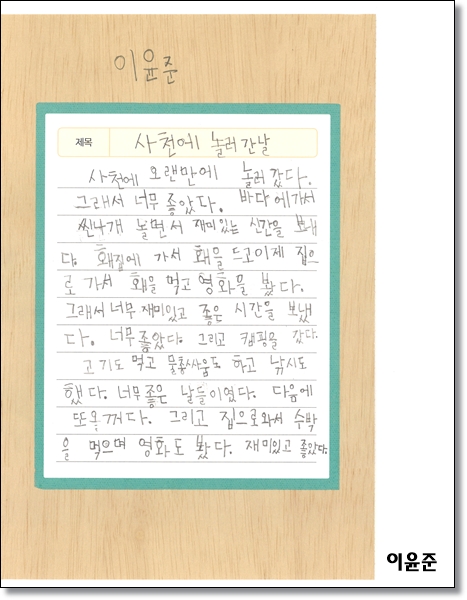 이윤준
제목 사천에 놀러간날
사천에 오랜만에 놀러 갔다.
그래서 너무 좋았다. 바다에가서
씬나개 놀면서 재미있는 신간을 보내
다. 홰집에 가서 홰을 드고이제 집으
로 가서 홰을 먹고 영화을 봤다.
그래서 너무 재미있고 좋은 시간을 보냈
다. 너무좋았다. 그리고 캠핑을 갔다.
고기도 먹고 물총싸움도 하고 낚시도
했다. 너무 좋은 날들이였다. 다음에
또옥꺼다. 그리고 집으로와서 수박
을 먹으며 영화도 봤다. 재미있고 좋았다.
이윤준